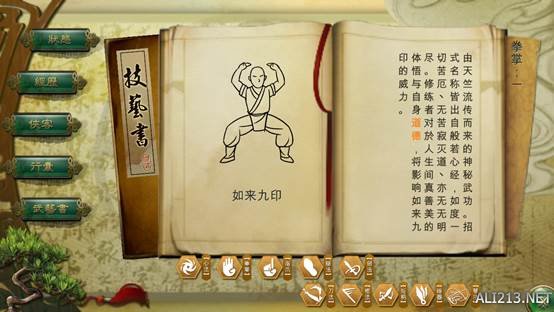 狀態
經歷
俠客
行囊
武藝書
技藝書
如来九印
拳掌：一
由天竺流传而来的神秘武功。招
式名称皆出自般若心经，如度一
切苦厄、无苦寂灭道、亦无无明
尽。修练者对於人生间真善美的
体悟与自身道德，将影响如来九
印的威力。
ALI213.NET